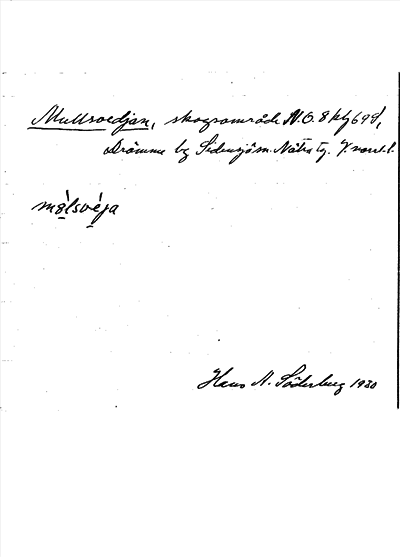 Mullsvedjan, skogsområde N.O. 8 kf 698,
Drömme by Sidensjö sn. Nätra tg. V.norrl. l.
mòlsvéja
Hans A. Söderberg 1930